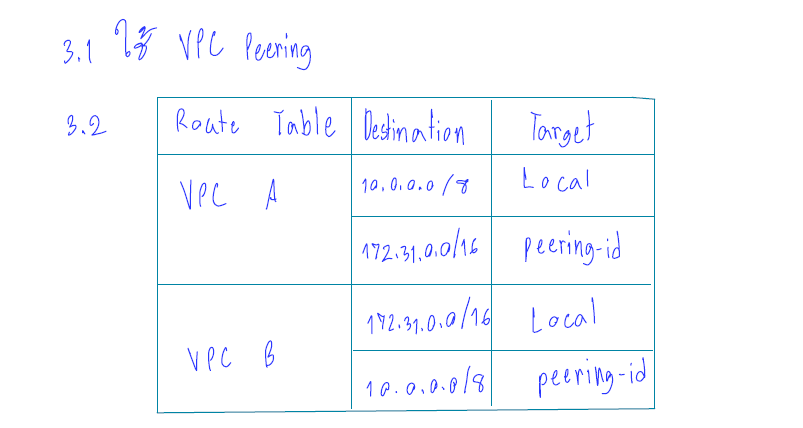 3.1 ใช้ VPC Peering
3.2
Route Table Destination Target
VPC A 10.0.0.0/8 Local
172.31.0.0/16 peering-id
VPC B 172.31.0.0/16 Local
10.0.0.0/8 peering-id